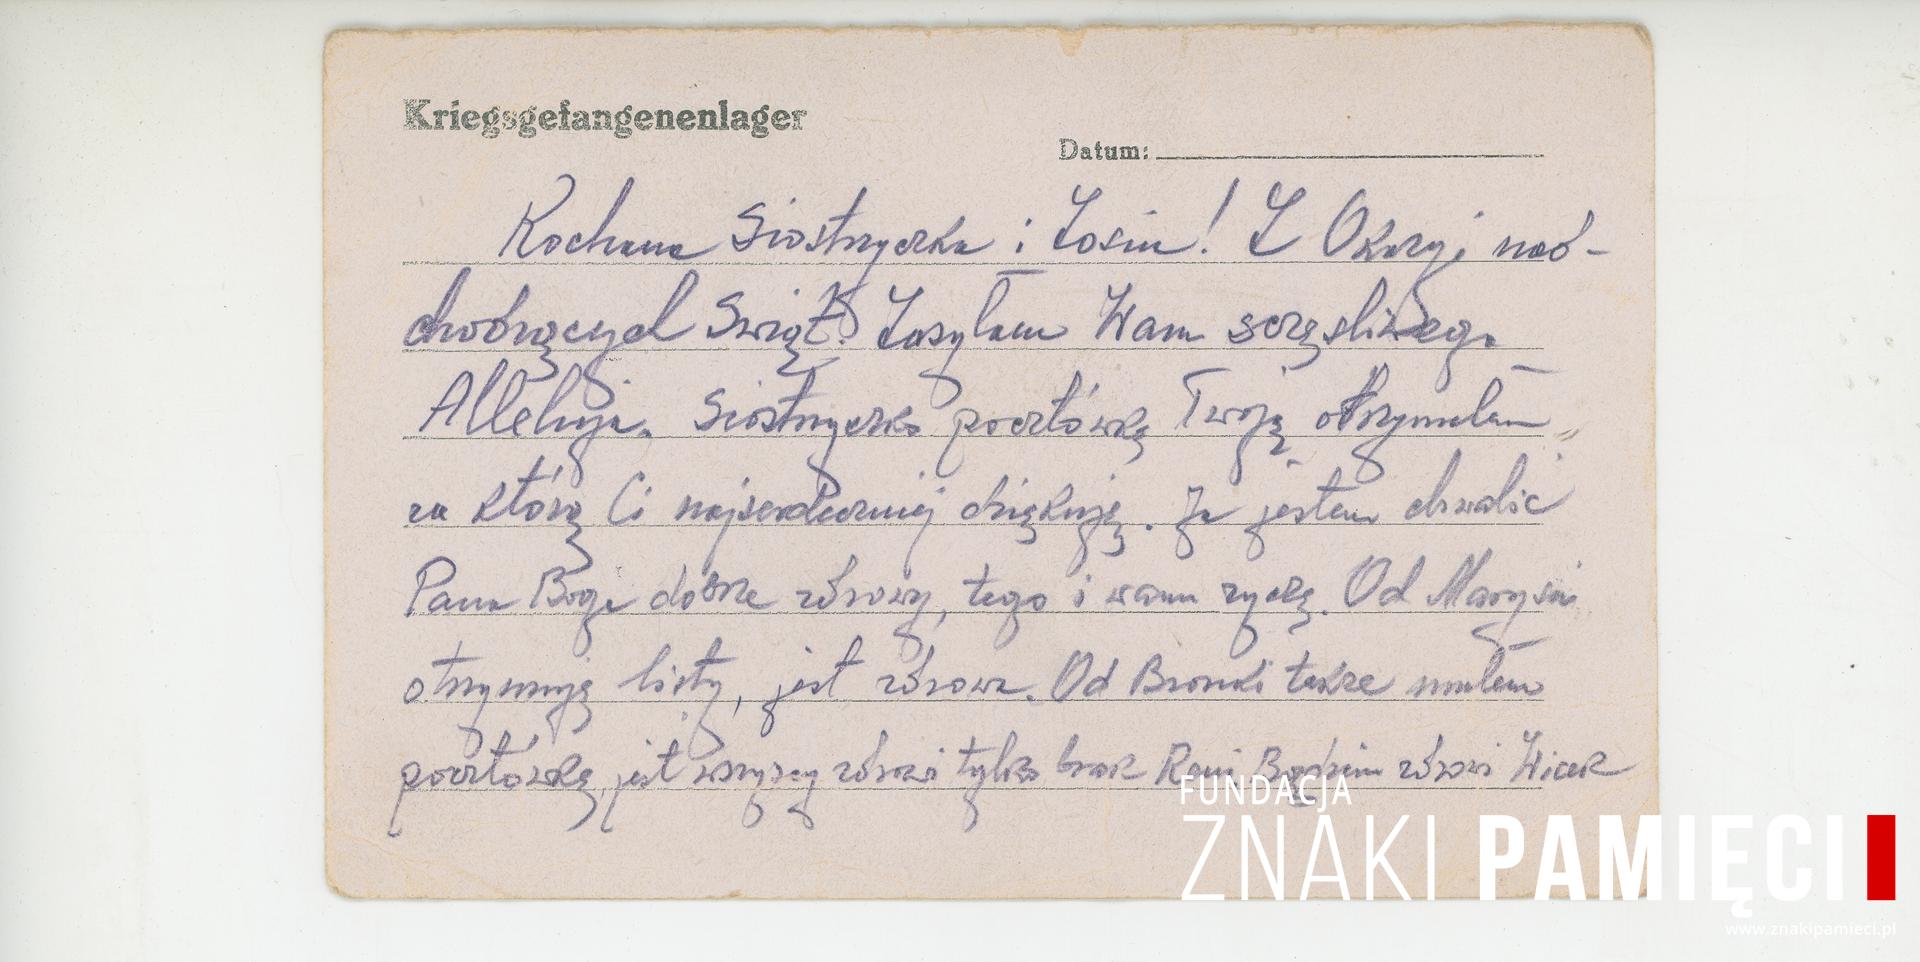 Kriegsgefangenenlager
Datum:
Kochana Siostrzyczka i Zosiu! Z Okazyi nad-
chodzących Swiąt Zasyłam Wam szczęśliwego
Alleluja. Siostrzyczko pocztówkę Twoją otrzymałem
za którą Ci najserdeczniej dziękuję. Ja jestem chwalić
Pana Boga dobrze zdrowy, tego i wam życzę. Od Marysi
otrzymuję listy, jest zdrowa. Od Bronki także miałem
pocztówkę, jest wszyscy zdrowi tylko brak Bądzcie zdrowi Wicek
FUNDACJA
ZNAKI PAMIĘCI
www.znakipamieci.pl